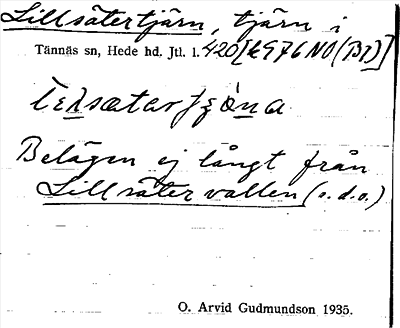 Lillsätertjärn, tjärn i
Tännäs sn, Hede hd. Jtl. l. 420 [4976 NO (BI)]
Belägen ej långt från
Lillsätervallen (s.d.o.)
O. Arvid Gudmundson 1935.